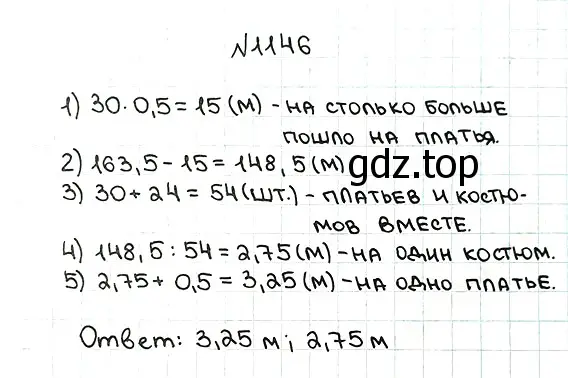 №1146
1) 30·0,5=15(м) - на столько больше
пошло на платья.
2) 163,5-15=148,5(м)
gdz.top
3) 30+24=54(шт.) - платьев и костю-
мов вместе.
4) 148,5:54=2,75(м) - на один костюм.
5) 2,75+0,5=3,25(м) - на одно платье.
Ответ: 3,25 м; 2,75 м